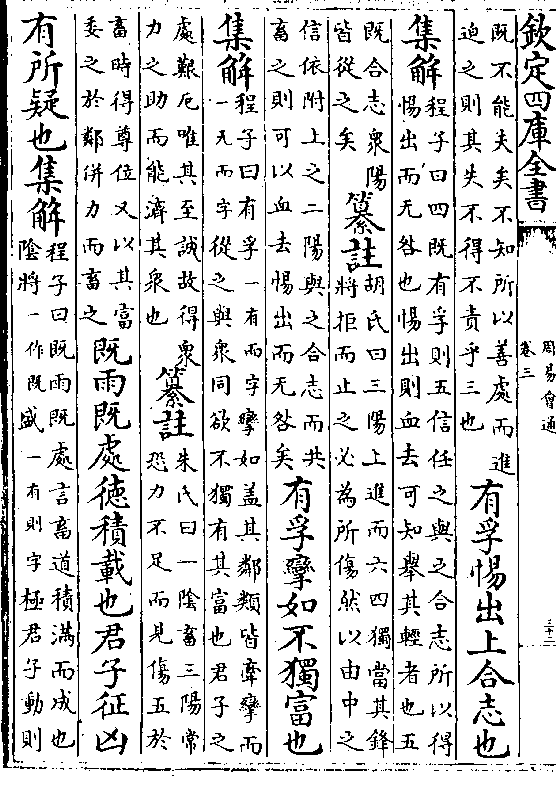 欽定四庫全書
周易會通
卷三
三十二
既不能夫矣不知所以善處而進
迫之則其失不得不責乎三也
有孚惕出上合志也
集解
程子曰四既有孚則五信任之與之合志所以得
惕出而无咎也惕出則血去可知舉其輕者也五
既合志衆陽
皆從之矣
纂註
胡氏曰三陽上進而六四獨當其鋒
將拒而止之必為所傷然以由中之
信依附上之二陽與之合志而共
畜之則可以血去惕出而无咎矣
有孚攣如不獨富也
集解
程子曰有孚一有而字攣如蓋其鄰類皆牽攣而
一无而字從之與衆同欲不獨有其富也君子之
處艱厄唯其至誠故得衆
力之助而能濟其衆也
纂註
朱氏曰一陰畜三陽常
恐力不足而見傷五於
畜時得尊位又以其富
委之於鄰併力而畜之
既雨既處德積載也君子征凶
有所疑也集解
程子曰既雨既處言畜道積滿而成也
陰將一作既盛一有則字極君子動則